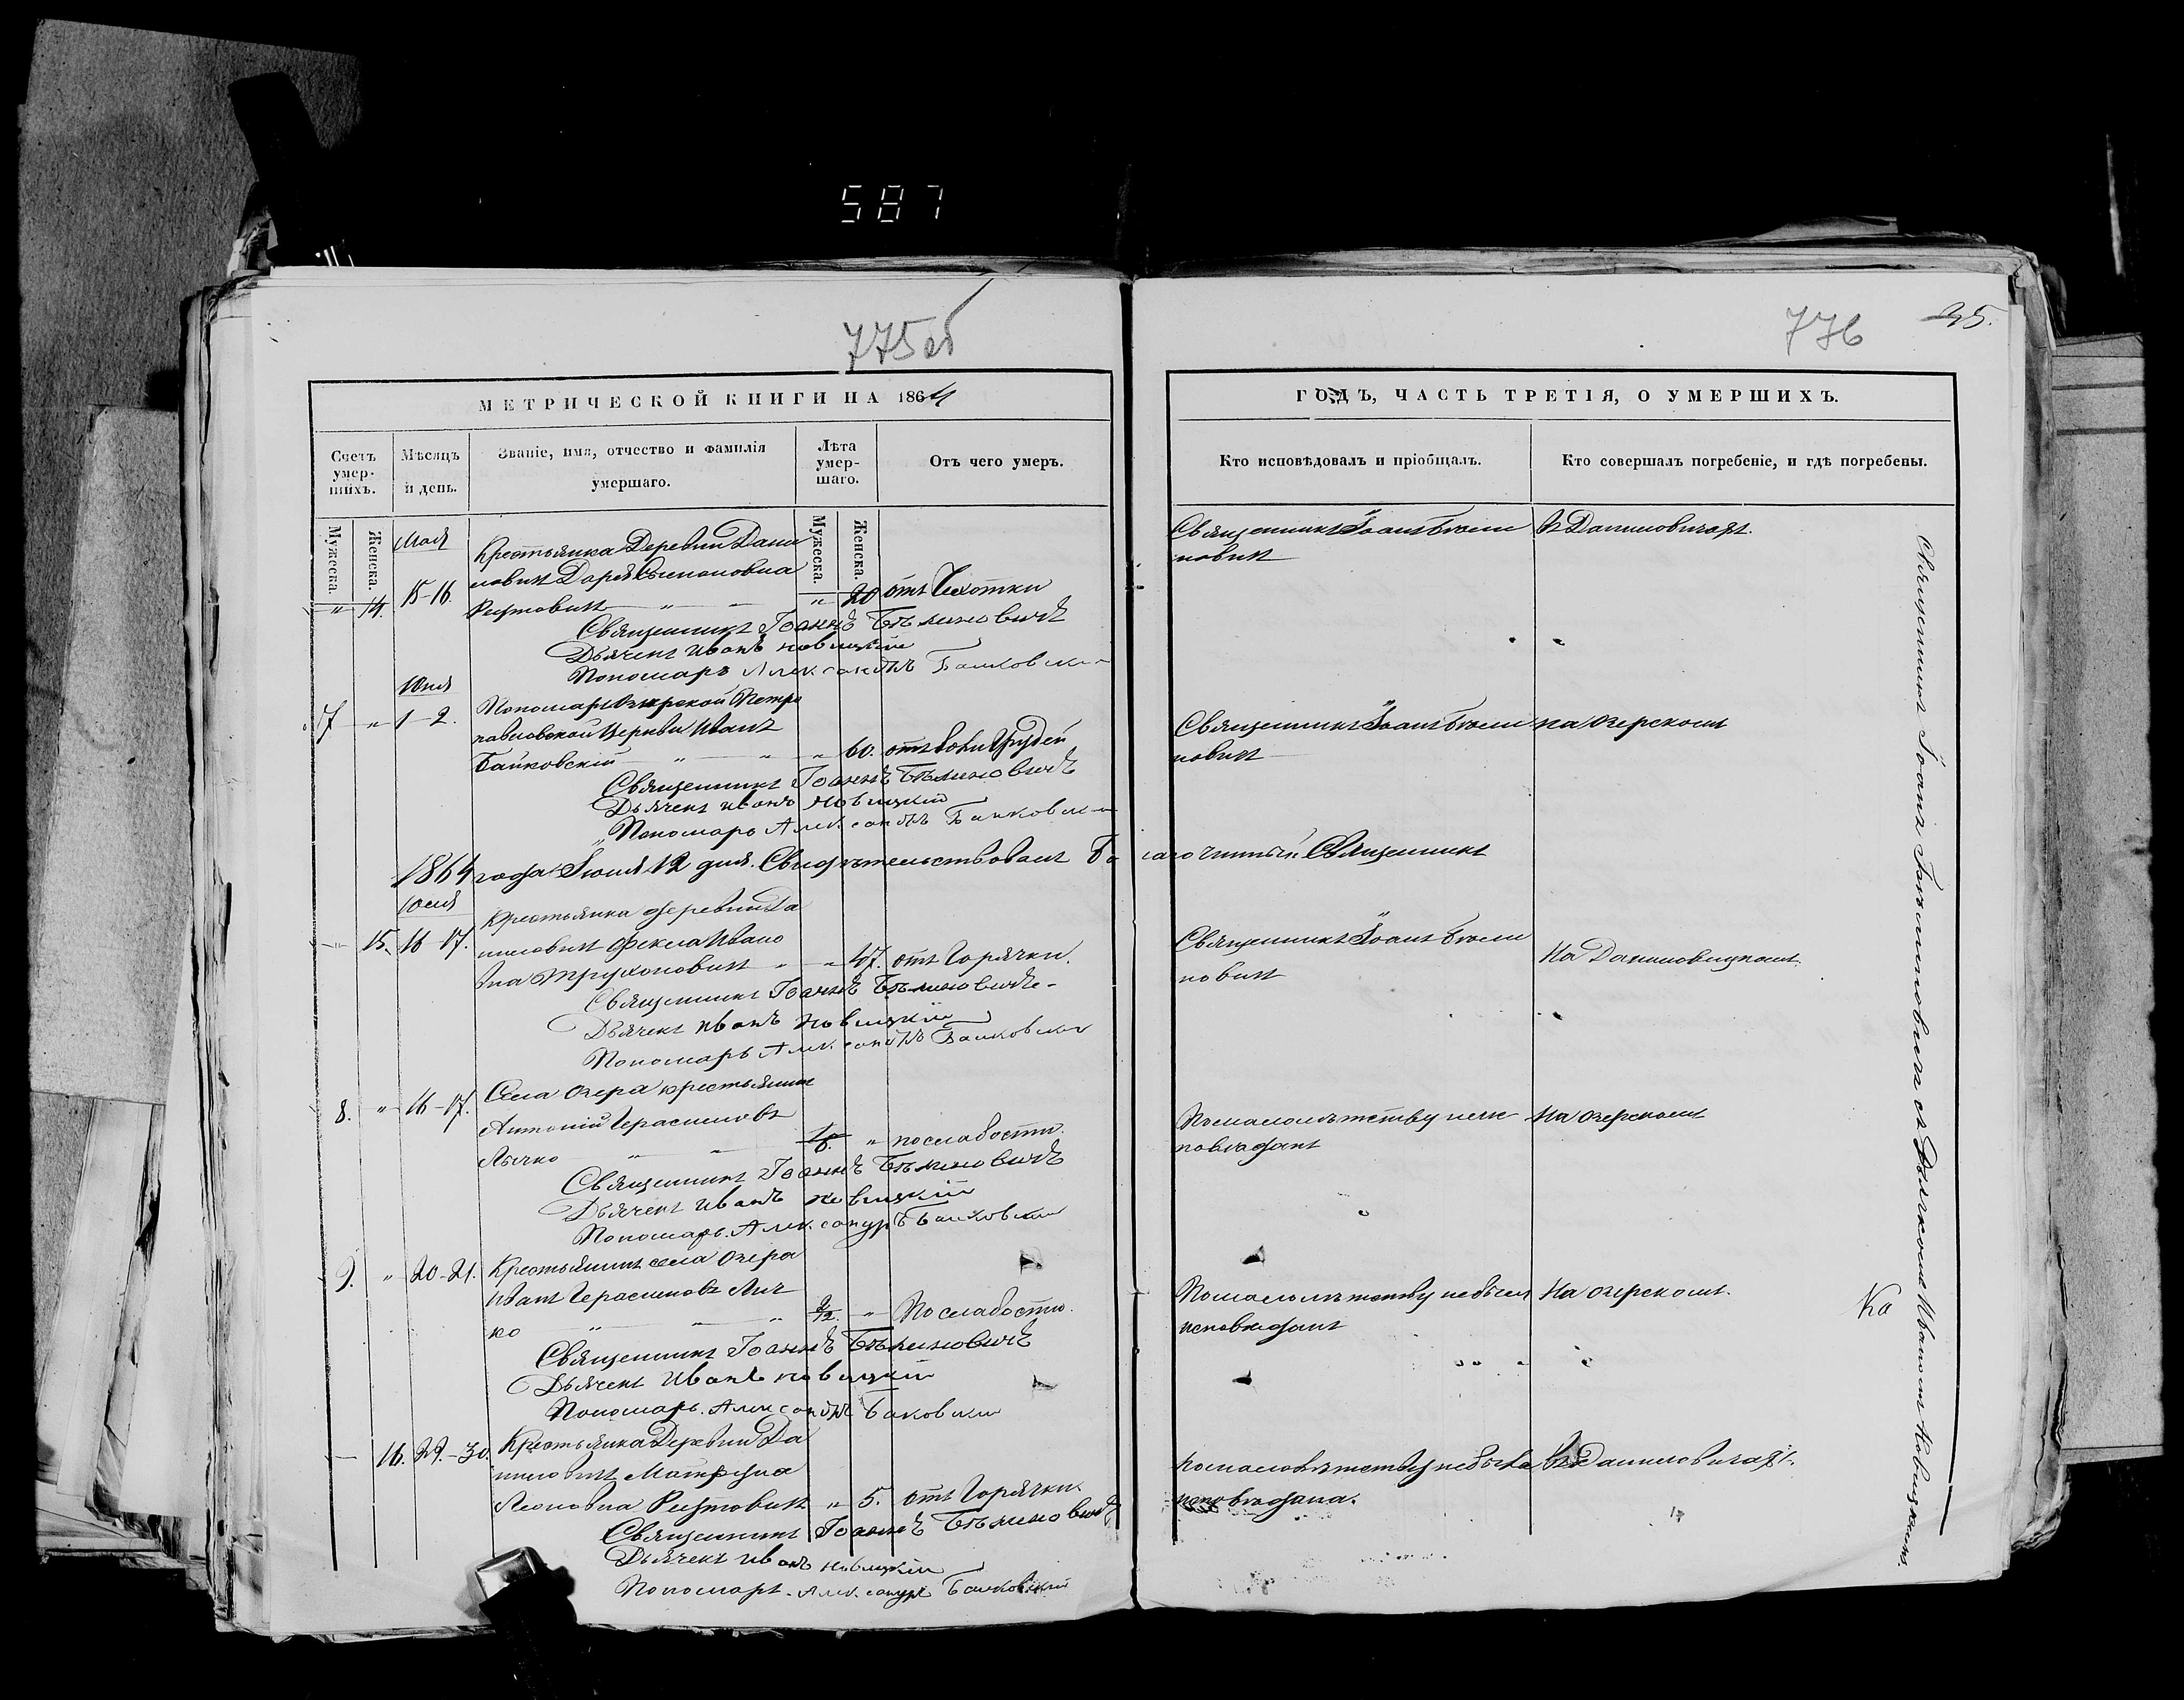 587
775об
776
35.
МЕТРИЧЕСКОЙ КНИГИ НА 1864
ГОДЪ, ЧАСТЬ ТРЕТІЯ, О УМЕРШИХЪ.
Счетъ умер-шихъ.
Мѣсяцъ и день.
Званіе, имя, отчество и фамилія умершаго.
Лѣта умер-шаго.
Отъ чего умеръ.
Кто исповѣдовалъ и пріобщалъ.
Кто совершалъ погребеніе, и гдѣ погребены.
Мужеска.
Женска.
Мужеска.
Женска.
Мая
Крестьянка Деревни Дани
ловичъ Дарія
" 14. 15-16. " 20 отъ Чахотки
Священникъ Іоаннъ Бѣлиновичъ
новичъ
въ Даниловичахъ.
Священникъ Іоаннъ Бѣлиновичъ
Дьячекъ Иванъ Новицкій
Пономарь Александръ
Іюня
7 " 1-2. Пономарь Озерской Петро
павловской Церкви Иванъ
Байковскій " " " 60. отъ боли Грудей
Священникъ Іоаннъ Бѣли
новичъ
на Озерскомъ
Священникъ Іоаннъ Бѣлиновичъ
Дьячекъ Иванъ Новицкій
Пономарь Александръ
1864 года Іюля 12 дня. Свидѣтельствовалъ Благочинный Священникъ
Іюля
" 15. 16-17. Крестьянка деревни Да
ниловичъ Фекла Ивано
вна Трухоновичъ " " 47. отъ Горячки.
Священникъ Іоаннъ Бѣли
новичъ
На Даниловицкомъ.
Священникъ Іоаннъ Бѣлиновичъ
Дьячекъ Иванъ Новицкій
Пономарь Александръ
8. " 16-17. Села Озера крестьянинъ
Антоній Герасимовъ
Лычко " " " по слабости.
По малолѣтству не ис
повѣданъ
На Озерскомъ
Священникъ Іоаннъ Бѣлиновичъ
Дьячекъ Иванъ Новицкій
Пономарь. Александръ
9. " 20-21. Крестьянинъ села Озера
Иванъ Герасимовъ Лыч
ко " " " " По слабости.
По малолѣтству не былъ
исповѣданъ
На Озерскомъ.
Священникъ Іоаннъ Бѣлиновичъ
Дьячекъ Иванъ Новицкій
Пономарь. Александръ
— 16. 29.-30. Крестьянка Деревни Да
ниловичъ Матрена
Леоновна " 5. отъ Горячки.
По малолѣтству не была
исповѣдана.
въ Даниловичахъ.
Священникъ Іоаннъ Бѣлиновичъ
Дьячекъ Иванъ Новицкій
Пономарь. Александръ
Священникъ Іоаннъ Бѣлиновичъ съ Дьячкомъ Иваномъ Новицкимъ.